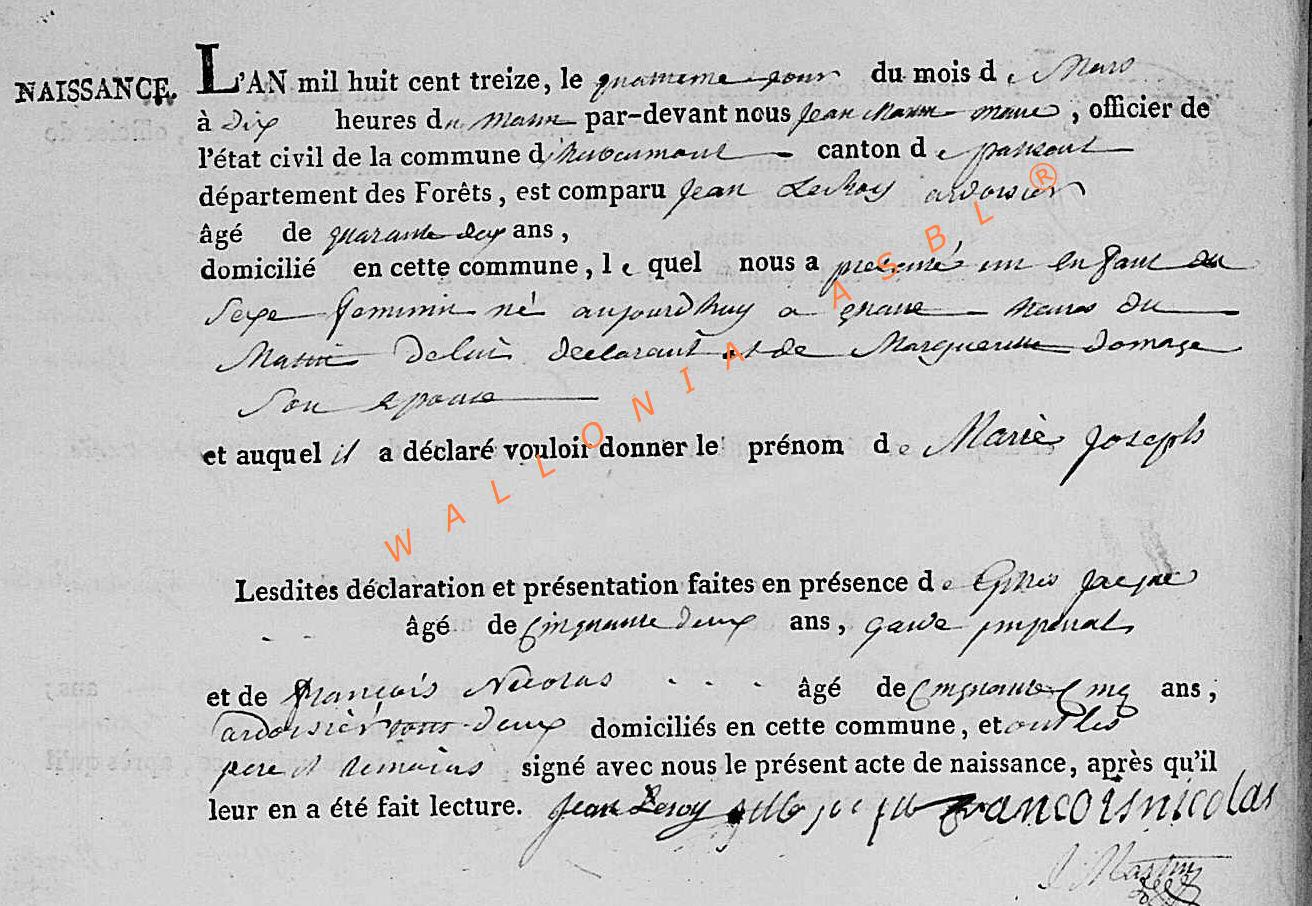 NAISSANCE.
L'AN mil huit cent treize, le quatrieme jour du mois de Mars
à Dix heures du matin par-devant nous jean Martin maire, officier de
l'état civil de la commune d'herbeumont canton de paliseul
département des Forêts, est comparu jean LeRoy ardoisier
âgé de quarante deux ans,
domicilié en cette commune, le quel nous a presenté un enfant du
Sexe feminin né aujourdhuy a quatre heures du
Matin De lui declarant et de Margueritte domage
Son epouse
et auquel il a déclaré vouloir donner le prénom de Marie joseph
Lesdites déclaration et présentation faites en présence de Gilles jacque
âgé de Cinquante deux ans, garde imperial
et de françois Nicolas âgé de Cinquante Cinq ans,
ardoisier tous deux domiciliés en cette commune, et ont les
pere et temoins signé avec nous le présent acte de naissance, après qu'il
leur en a été fait lecture. Jean Leroy francoisnicolas
J Martin
WALLONIA ASBL ®